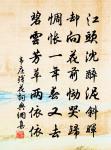 江頭沈醉泥斜暉
却向花前慟哭歸
惆悵一年春又去
碧雲芳草兩依依